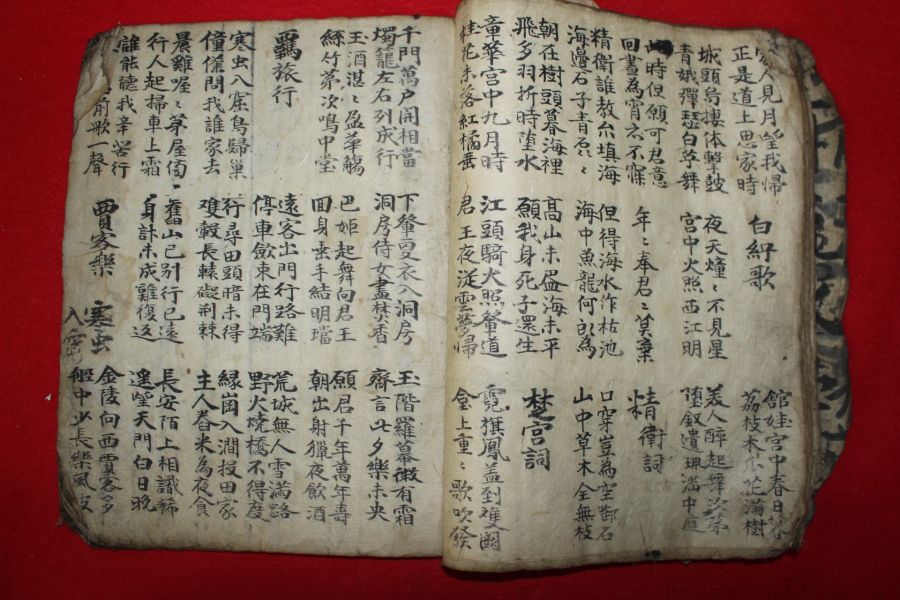 家人見月望我歸
正是道上思家時
白紵歌
館娃宮中春日暮
荔枝木瓜花滿樹
城頭烏棲休擊鼓
青娥彈瑟白苧舞
夜天燑〻不見星
宮中火照西江明
美人醉起無次第
墮釵遺珮滿中庭
此時但願可君意
回晝為宵亦不寐
年〻奉君君莫棄
精衛詞
精衛誰教尔填海
海邊石子青磊〻
但得海水作枯池
海中魚龍何所為
口穿豈為空啣石
山中草木全無枝
朝在樹頭暮海裡
飛多羽折時墮水
高山未盡海未平
願我身死子還生
楚宮詞
章華宮中九月時
桂花未落紅橘垂
江頭騎火照輦道
君王夜從雲夢歸
霓旌鳳盖到雙闕
臺上重〻歌吹發
千門萬户開相當
燭籠左右列成行
下輦更衣入洞房
洞房侍女盡焚香
玉階羅幕微有霜
齊言此夕樂未央
玉酒湛〻盈華觴
絲竹苐次鳴中堂
巴姬起舞向君王
回身垂手結明璫
願君千年萬年壽
朝出射獵夜飲酒
羈旅行
遠客出門行路難
停車斂束在門端
荒城無人雪滿路
野火燒橋不得度
寒虫入窟鳥歸巢
僮僕問我誰家去
行尋田頭暗未得
雙轂長轅礙荊棘
緣崗入澗投田家
主人舂米為夜食
晨雞喔〻茅屋傍
行人起掃車上霜
舊山已別行已遠
身計未成難復返
長安陌上相識稀
遙望天門白日晚
誰能聽我辛苦行
前歌一聲
賈客樂
寒虫入窟
金陵向西賈客多
船中少長樂風波